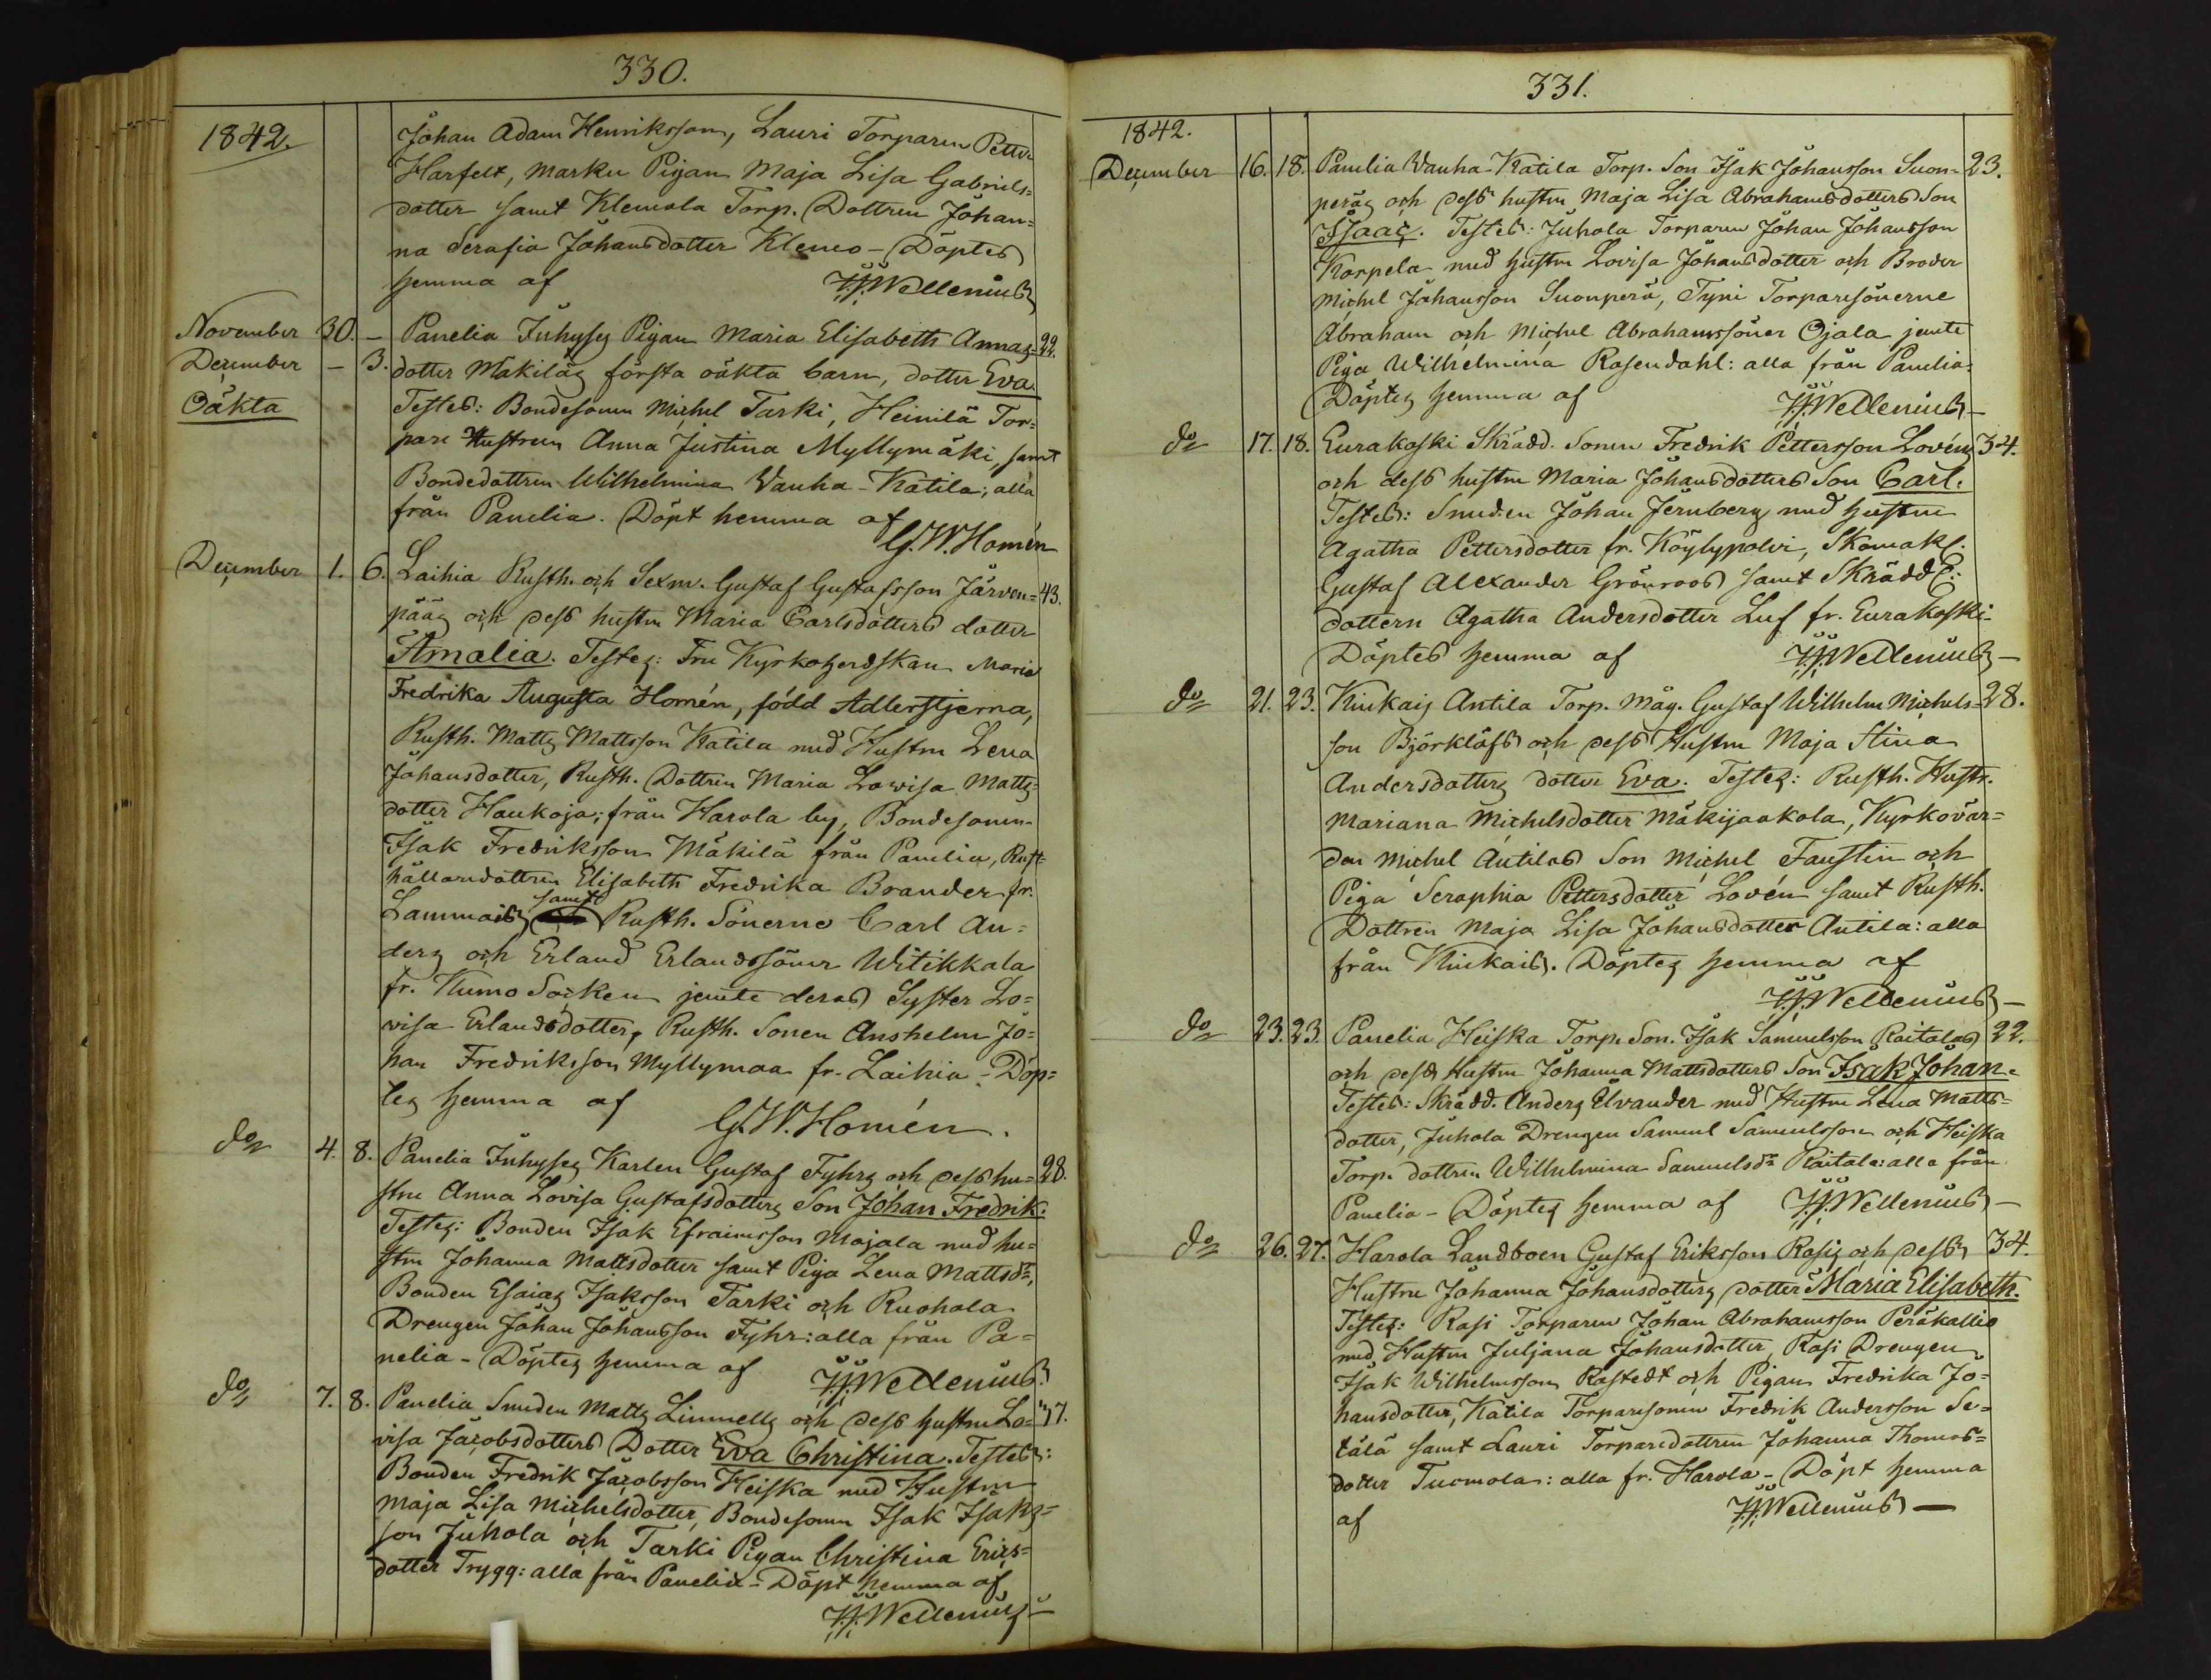 330.
1842.
Johan Adam Henriksson, Lauri Torparen Petter
Harfelt, Marku Pigan Maja Lisa Gabriels=
dotter samt Klemola Torp. Dottren Johan=
na Serafia Johansdotter Klemo - Döptes
hemma af
J.J. Wellenius
November 30. - Panelia Inhyses Pigan Maria Elisabeth Annas= 22.
December - 3. dotter Mäkiläs första oäkta barn, dotter Eva.
Oäkta
Testes: Bondesonen Michel Tarki, Heinilä Tor=
pare Hustrun Anna Justina Myllymäki, samt
Bondedottren Wilhelmina Wanha-Katila; alla
från Panelia. Döpt hemma af
G.W. Homén
December 1. 6. Laihia Rusth. och Sexm. Gustaf Gustafsson Järven= 43.
pääs och dess hustru Maria Carlsdotters dotter
Amalia. Testes: Fru Kyrkoherdskan Maria
Fredrika Augusta Homén, född Adlerstjerna,
Rusth. Matts Mattsson Katila med Hustru Lena
Johansdotter, Rusth. Dottren Maria Lowisa Matts=
dotter Haukoja; från Harola by, Bondesonen
Isak Fredriksson Mäkilä från Panelia, Rust=
hållaredottren Elisabeth Fredrika Brander fr.
Lammais samt Rusth. Sönerne Carl An=
ders och Erland Erlandssöner Witikkala
fr. Kumo Socken jemte deras Syster Lo=
visa Erlandsdotter, Rusth. Sonen Anshelm Jo=
han Fredriksson Myllymaa fr. Laihia - Döp=
tes hemma af
G.W. Homén.
do 4. 8. Panelia Inhyses Karlen Gustaf Fyhrs och dess hu= 28.
stru Anna Lovisa Gustafsdotters Son Johan Fredrik.
Testes: Bonden Isak Efraimsson Majala med hu=
stru Johanna Mattsdotter samt Piga Lena Mattsdr,
Bonden Esaias Isaksson Tarki och Ruohola
Drengen Johan Johansson Fyhr: alla från Pa=
nelia - Döptes hemma af
J.J. Wellenius
do 7. 8. Panelia Smeden Matts Linnells och dess hustru Lo=
visa Jacobsdotters Dotter Eva Christina. Testes:
Bonden Fredrik Jacobsson Heiska med Hustru
Maja Lisa Michelsdotter, Bondesonen Isak Isaks=
son Juhola och Tarki Pigan Christina Erics=
dotter Trygg: alla från Panelia - Döpt hemma af
J.J. Wellenius -
331.
1842.
December 16. 18. Panelia Wanha-Katila Torp. Son Isak Johansson Suon= 23.
peräs och dess hustru Maja Lisa Abrahamsdotters Son
Isaac. Testes: Juhola Torparen Johan Johansson
Korpela med hustru Lovisa Johansdotter och Broder
Michel Johansson Suonperä, Typi Torparesönerne
Abraham och Michel Abrahamssöner Ojala jemte
Piga Wilhelmina Rosendahl: alla från Panelia:
Döptes hemma af
J.J. Wellenius -
do 17. 18. Eurakoski Skrädd. Sonen Fredrik Pettersson Lovéns 34.
och dess hustru Maria Johansdotters Son Carl.
Testes: Smeden Johan Jernberg med hustru
Agatha Pettersdotter fr. Köylypolvi, Skomak.
Gustaf Alexander Grönroos samt Skrädd.
dottern Agatha Andersdotter Luf fr. Eurakoski -
Döptes hemma af
J.J. Wellenius -
do 21. 23. Kiukais Antila Torp. måg. Gustaf Wilhelm Michels= 28.
son Björklöfs och dess Hustru Maja Stina
Andersdotters dotter Eva. Testes: Rusth. Hustr.
Mariana Michelsdotter Mäkijaakola, Kyrkovär=
den Michel Antilas Son Michel Faustin och
Piga Seraphia Pettersdotter Lovén samt Rusth.
Dottren Maja Lisa Johansdotter Antila: alla
från Kiukais. Döptes hemma af
J.J. Wellenius -
do 23. 23. Panelia Heiska Torp. Son. Isak Samuelsson Raitalas 22.
och dess Hustru Johanna Mattsdotters Son Isak Johan.
Testes: Skrädd. Anders Elvander med Hustru Lena Matts=
dotter, Juhola Drengen Samuel Samuelsson och Heiska
Torp. dottren Wilhelmina Samuelsdr Raitala: alla från
Panelia - Döptes hemma af J.J. Wellenius -
do 26. 27. Harola Landboen Gustaf Eriksson Rasis och dess 34.
Hustru Johanna Johansdotters dotter Maria Elisabeth.
Testes: Rasi Torparen Johan Abrahamsson Peräkallio
med Hustru Juljana Johansdotter, Rasi Drengen
Isak Wilhelmsson Rastedt och Pigan Fredrika Jo=
hansdotter, Katila Torparesonen Fredrik Andersson Se=
tälä samt Lauri Torparedottren Johanna Thomas=
dotter Tuomola: alla fr. Harola - Döpt hemma
af
J.J. Wellenius -